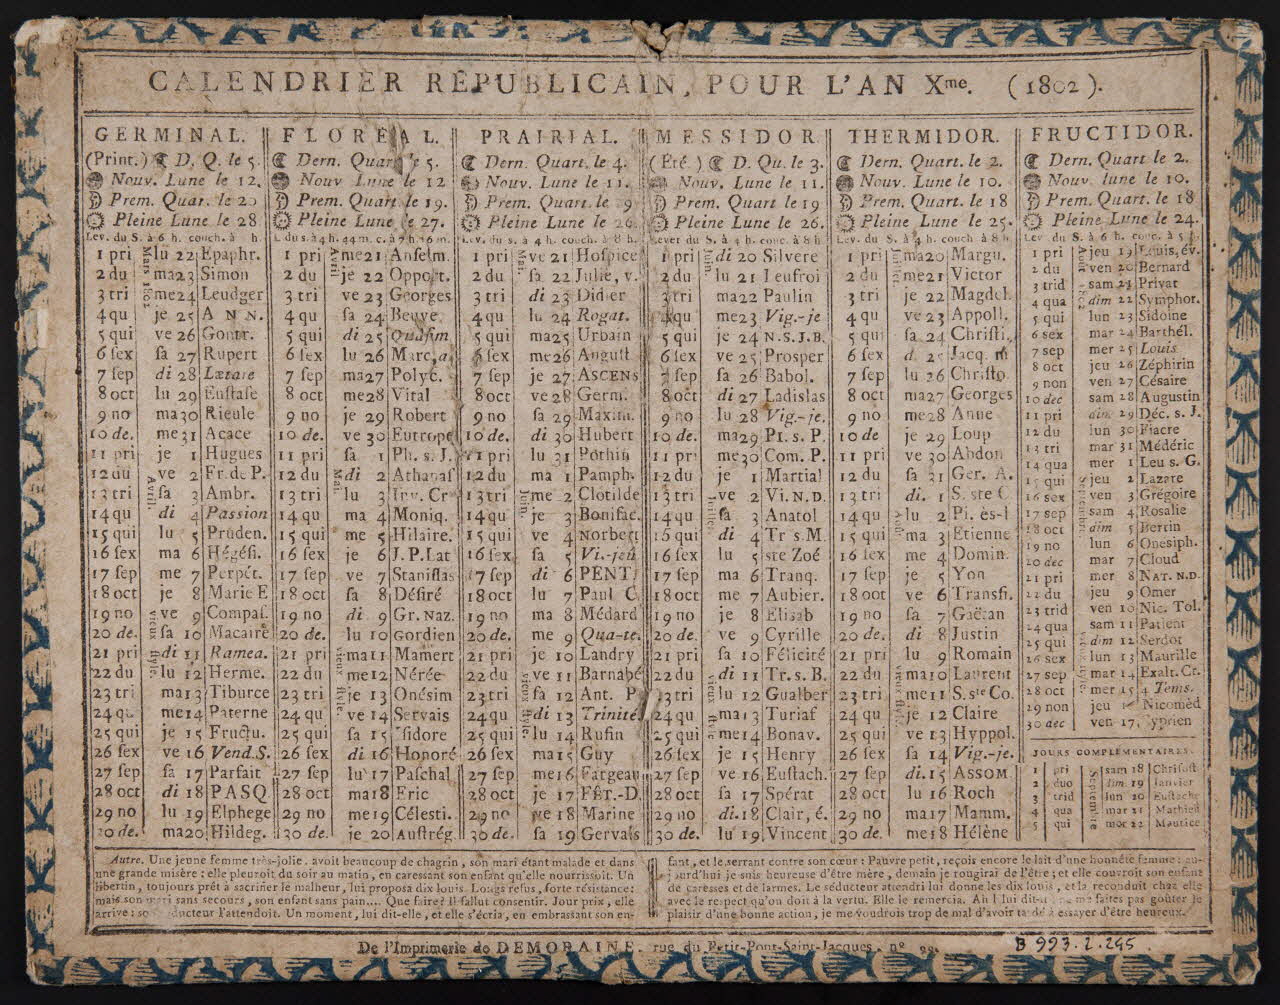 CALENDRIER RÉPUBLICAIN, POUR L'AN Xme. (1802).
GERMINAL.
(Print.) D. Q. le 5.
Nouv. Lune le 12.
Prem. Quar. le 20
Pleine Lune le 28
Lev. du S. à 6 h. couch. à h.
Mars 1802
Avril.
vieux ſtyle.
1 pri lu 22 Epaphr.
2 du ma 23 Simon
3 tri me 24 Leudger
4 qu je 25 ANN.
5 qui ve 26 Gontr.
6 ſex ſa 27 Rupert
7 ſep di 28 Lætare
8 oct lu 29 Euſtaſe
9 no ma 30 Rieule
10 de. me 31 Acace
11 pri je 1 Hugues
12 du ve 2 Fr. de P.
13 tri ſa 3 Ambr.
14 qu di 4 Paſſion
15 qui lu 5 Pruden.
16 ſex ma 6 Hégéſi.
17 ſep me 7 Perpét.
18 oct je 8 Marie E
19 no ve 9 Compaſ.
20 de. ſa 10 Macaire
21 pri di 11 Ramea.
22 du lu 12 Herme.
23 tri ma 13 Tiburce
24 qu. me 14 Paterne
25 qui je 15 Fructu.
26 ſex ve 16 Vend. S.
27 ſep ſa 17 Parfait
28 oct di 18 PASQ
29 no lu 19 Elphege
30 de. ma 20 Hildeg.
FLORÉAL.
Dern. Quart le 5.
Nouv Lune le 12
Prem. Quart le 19.
Pleine Lune le 27.
L. du s. à 4 h. 44 m. c. à 7 h 16 m.
Avril
Mai.
vieux ſtyle.
1 pri me 21 Anſelm.
2 du je 22 Opport.
3 tri ve 23 Georges
4 qu ſa 24 Beuve
5 qui di 25 Quaſim
6 ſex lu 26
7 ſep ma 27 Polyc.
8 oct me 28 Vital
9 no je 29 Robert
10 de. ve 30 Eutrope
11 pri ſa 1 Ph. s. J.
12 du di 2 Athanaſ
13 tri lu 3 Inv. Cr
14 qu ma 4 Moniq.
15 qui me 5 Hilaire.
16 ſex je 6 J.P.Lat
17 ſep ve 7 Staniſlas
18 oct ſa 8 Déſiré
19 no di 9 Gr. Naz.
20 de. lu 10 Gordien
21 pri ma 11 Mamert
22 du me 12 Nérée
23 tri je 13 Onéſim
24 qu ve 14 Servais
25 qui ſa 15 Iſidore
26 ſex di 16 Honoré
27 ſep lu 17 Paſchal
28 oct ma 18 Eric
29 no me 19 Céleſti.
30 de. je 20 Auſtrég.
PRAIRIAL.
Dern. Quart. le 4.
Nouv. Lune le 11.
Prem. Quart. le 19
Pleine Lune le 26
Lev. du s. à 4 h. couch. à 8 h.
Mai.
Juin.
vieux ſtyle.
1 pri ve 21 Hoſpice
2 du ſa 22 Julie, v.
3 tri di 23 Didier
4 qu lu 24 Rogat.
5 qui ma 25 Urbain
6 ſex me 26 Auguſt
7 ſep je 27 ASCENS
8 oct ve 28 Germ.
9 no ſa 29 Maxim.
10 de. di 30 Hubert
11 pri lu 31 Pothin
12 du ma 1 Pamph.
13 tri me 2 Clotilde
14 qu je 3 Boniſac.
15 qui ve 4 Norbert
16 ſex ſa 5 Vi.-jeû
17 ſep di 6 PENT.
18 oct lu 7 Paul C
19 no ma 8 Médard
20 de. me 9 Qua-te.
21 pri je 10 Landry
22 du ve 11 Barnabé
23 tri ſa 12 Ant. P
24 qu di 13 Trinité
25 qui lu 14 Rufin
26 ſex ma 15 Guy
27 ſep me 16 Fargeau
28 oct je 17 FÊT.-D.
29 no ve 18 Marine
30 de. ſa 19 Gervais
MESSIDOR.
(Été.) D. Qu. le 3.
Nouv. Lune le 11.
Prem. Quart le 19
Pleine Lune le 26.
Lever du S. à 4 h. couc. à 8 h
Juin
Juillet
vieux ſtyle
1 pri di 20 Silvere
2 du lu 21 Leufroi
3 tri ma 22 Paulin
4 qu me 23 Vig.-je
5 qui je 24 N.S.J.B.
6 ſex ve 25 Proſper
7 ſep ſa 26 Babol.
8 oct di 27 Ladislas
9 no lu 28 Vig.-je.
10 de. ma 29 PI. s. P.
11 pri me 30 Com. P.
12 du je 1 Martial
13 tri ve 2 Vi. N.D.
14 qu ſa 3 Anatol
15 qui di 4 Tr s.M.
16 ſex lu 5 ste Zoé
17 ſep ma 6 Tranq.
18 oct me 7 Aubier.
19 no je 8 Elisab
20 de. ve 9 Cyrille
21 pri ſa 10 Félicité
22 du di 11 Tr. s. B.
23 tri lu 12 Gualber
24 qu ma 13 Turiaf
25 qui me 14 Bonav.
26 ſex je 15 Henry
27 ſep ve 16 Euſtach.
28 oct ſa 17 Spérat
29 no di. 18 Clair, é.
30 de. lu 19 Vincent
THERMIDOR.
Dern. Quart. le 2.
Nouv. Lune le 10.
Prem. Quart. le 18
Pleine Lune le 25.
Lev. du S. à 4 h. couch. à 8 h
Juillet
Août
vieux ſtyle.
1 pri ma 20 Margu.
2 du me 21 Victor
3 tri je 22 Magdel.
4 qu ve 23 Appoll.
5 qui ſa 24 Chriſti.
6 ſex d. 25 Jacq. m
7 ſep lu 26 Chriſto.
8 oct ma 27 Georges
9 no me 28 Anne
10 de je 29 Loup
11 pri ve 30 Abdon
12 du ſa 31 Ger. A.
13 tri di. 1 S. ste C
14 qu lu 2 Pi. ès-l
15 qui ma 3 Etienne
16 ſex me 4 Domin.
17 ſep je 5 Yon
18 oct ve 6 Transfi.
19 no ſa 7 Gaëtan
20 de. di 8 Juſtin
21 pri lu 9 Romain
22 du ma 10 Laurent
23 tri me 11 S. ste Co.
24 qu. je 12 Claire
25 qui ve 13 Hyppol.
26 ſex ſa 14 Vig.-je.
27 ſep di. 15 ASSOM.
28 oct lu 16 Roch
29 no ma 17 Mamm.
30 de. me 18 Hélène
FRUCTIDOR.
Dern. Quart le 2.
Nouv. lune le 10.
Prem. Quart le 18
Pleine Lune le 24.
Lev. du S. à 6 h. couc. à 5 h
vieux ſtyle.
1 pri jeu 19 Louis, év.
2 du ven 20 Bernard
3 trid sam 21 Privat
4 qua dim 22 Symphor.
5 qui lun 23 Sidoine
6 sex mar 24 Barthél.
7 sep mer 25 Louis
8 oct jeu 26 Zéphirin
9 non ven 27 Césaire
10 dec sam 28 Augustin
11 pri dim 29 Déc. s. J.
12 du lun 30 Fiacre
13 tri mar 31 Médéric
14 qua mer 1 Leu s. G.
15 qui jeu 2 Lazare
16 sex ven 3 Grégoire
17 sep sam 4 Rosalie
18 oct dim 5 Bertin
19 no lun 6 Onesiph.
20 dec mar 7 Cloud
21 pri mer 8 NAT. N.D.
22 du jeu 9 Omer
23 trid ven 10 Nic. Tol.
24 qua sam 11 Patient
25 qui dim 12 Serdot
26 sex lun 13 Maurille
27 sep mar 14 Exalt. Cr.
28 oct mer 15 4 Tems.
29 non jeu 16 Nicomèd
30 dec ven 17 Cyprien
JOURS COMPLÉMENTAIRES.
Septembre
1 pri sam 18 Chriſoſt
2 duo dim. 19 Janvier
3 trid lun 20 Euſtache
4 qua mar 21 Mathieu
5 qui mer 22 Maurice
Autre. Une jeune femme très-jolie, avoit beaucoup de chagrin, son mari étant malade et dans
une grande misère : elle pleuroit du soir au matin, en caressant son enfant qu'elle nourrissoit. Un
libertin, toujours prêt à sacrifier le malheur, lui proposa dix louis. Longs refus, forte résistance:
mais son mari sans secours, son enfant sans pain.... Que faire? Il fallut consentir. Jour prix, elle
arrive : son séducteur l'attendoit. Un moment, lui dit-elle, et elle s'écria, en embrassant son en-
fant, et le serrant contre son cœur : Pauvre petit, reçois encore le lait d'une honnête femme : au-
jourd'hui je suis heureuse d'être mère, demain je rougirai de l'être; et elle couvroit son enfant
de caresses et de larmes. Le séducteur attendri lui donne les dix louis, et la reconduit chez elle
avec le respect qu'on doit à la vertu. Elle le remercia. Ah ! lui dit-il ne me faites pas goûter le
plaisir d'une bonne action, je me voudrois trop de mal d'avoir tardé à essayer d'être heureux.
De l'Imprimerie de DEMORAINE, rue du Petit-Pont-Saint-Jacques, n° 99.
B 993.2.245